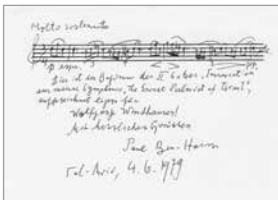 Molto sostenuto
p espr. 3 pp
Dies ist der Beginn des II Satzes, "Invocation"
aus meiner Symphonie, "The Sweet Psalmist of Israel",
eigens für
Wolfgang Windhausen!
Mit herzlichen Grüssen
Paul Ben-Haim
Tel-Aviv, 4.6.1979